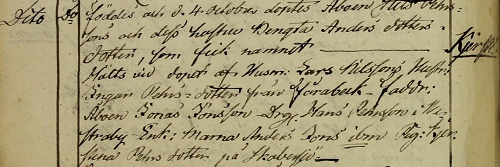 Dito Do föddes och d. 4 October döptes Åboen Pehrs-
sons och dess hustru Bengta Anders Dotter-
Dotter, som fick namnet Kjerst
Hölts vid dopet af Husm: Lars Nilssons Hustr:
Ingar Pehrs-Dotter från Fjärabeck-faddr:
Åboen Jonas Jönsson-Drg: Hans Pehrsson i
straby-Enk: Marna Anders Jöns ibm Pig: Kjer-
stena Pehrs Dotter på Skabersjö-